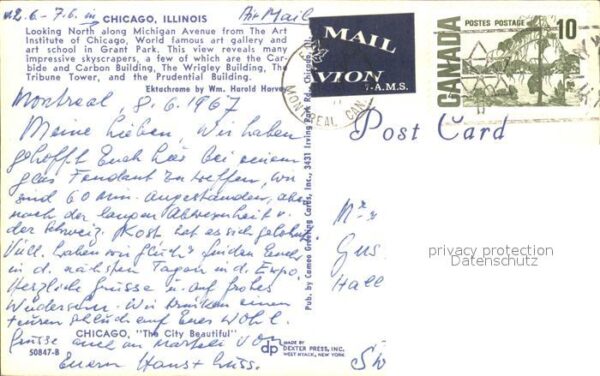 2.6. - 7.6. in CHICAGO, ILLINOIS
Air Mail
Looking North along Michigan Avenue from The Art
Institute of Chicago, World famous art gallery and
art school in Grant Park. This view reveals many
impressive skyscrapers, a few of which are the Car-
bide and Carbon Building, The Wrigley Building, The
Tribune Tower, and the Prudential Building.
Ektachrome by Wm. Harold Harvey
AIR MAIL
PAR AVION
7-A.M.S.
POSTES POSTAGE
10
CANADA
MONTREAL CAN
Post Card
Montreal, 8.6.1967
Meine Lieben, Wir haben
gehofft Euch hier bei einem
glas Fondant zu treffen, wir
sind 60 Min. angestanden, aber
nach der langen Abwesenheit v.
der Schweiz. Kost hat es sich gelohnt
Vill. haben wir glück & finden Euch
in d. nächsten Tagen in d. Expo.
Herzliche Grüsse u. auf frohes
Wiedersehn. Wir trinken einen
auf Euer Wohl.
Grüsse auch an von
Euern Hans +
Pub. by Cameo Greeting Cards, Inc., 3431 Irving Park Rd., Chicago, Ill.
Gus.
Hall
privacy protection
Datenschutz
CHICAGO, "The City Beautiful"
50847-B
dp MADE BY
DEXTER PRESS, INC.
WEST NYACK, NEW YORK